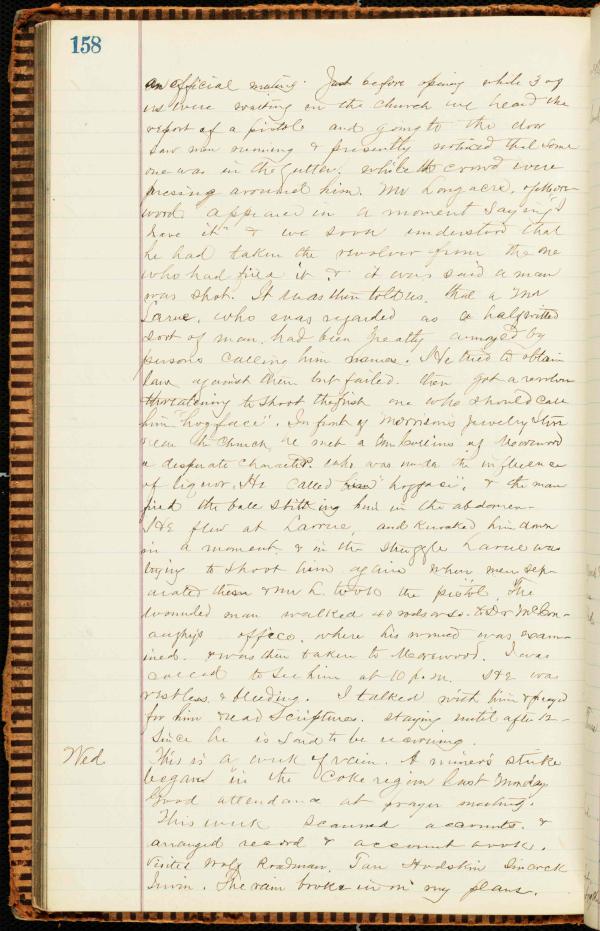 158
an official meeting. Just before opening while 3 of
us were waiting in the church we heard the
report of a pistol and going to the door
saw men running & presently noticed that some
one was in the gutter. while the crowd were
pressing around him. Mr Longacre, of
wood appeared in a moment saying "I
have it" & we soon understood that
he had taken the revolver from the one
who had fired it & it was said a man
was shot. It was then told us, that a Mr
Larue, who was regarded as a halfwitted
sort of man, had been greatly annoyed by
persons calling him names. He tried to obtain
law against them but failed. then got a revolver
threatening to shoot the first one who should call
him "hogface". In front of Morrison's Jewelry Store
near the Church, he met a Mr Collins of Morewood
a desperate character. who was under the influence
of liquor. He called him "hogface", & the man
fired the ball striking him in the abdomen.
He flew at Larue, and knocked him down
in a moment, & in the struggle Larue was
trying to shoot him again when men sep-
arated them & Mr L. took the pistol. The
wounded man walked 40 rods or so to Dr McCon-
aughy's office, where his wound was exam-
ined. & was then taken to Morewood. I was
called to see him at 10 p.m. He was
restless & bleeding. I talked with him & prayed
for him & read Scriptures. staying until after 12-
Since he is said to be
Wed. This is a week of rain. A miner's strike
began in the Coke region last Monday
Good attendance at prayer meeting.
This week scanned accounts. &
arranged record & account work.
Visited Wolf Roadman,
Irwin. The rain broke in on my plans.